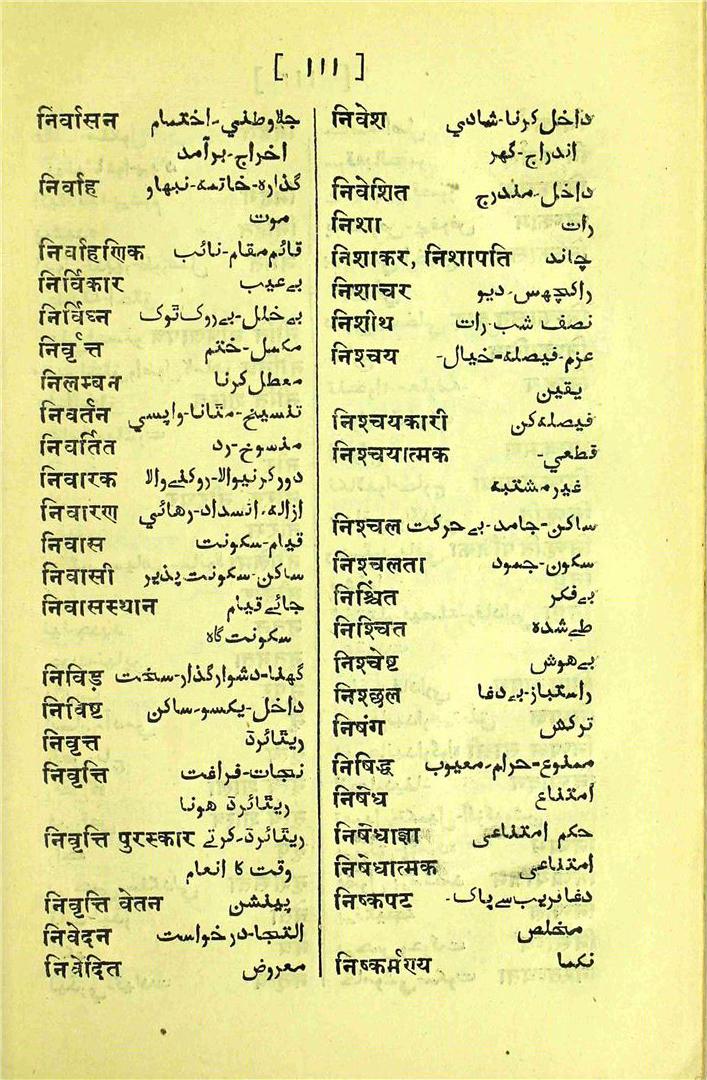 [ ۱۱۱ ]
निर्वासन جلاوطنی-اختسام
اخراج-برآمد
निर्वाह گذارہ-خاتمہ-نبھاو
موت
निर्वाहणिक قائم مقام-نائب
निर्विकार بے عیب
निर्विघ्न بے خلل-بے روک ٹوک
निर्वृत्त مکمل-ختم
निलम्बन معطل کرنا
निवर्तन تنسیخ-مٹانا-واپسی
निवर्तित منسوخ-رد
निवारक دور کرنیوالا-روکنے والا
निवारण ازالہ-انسداد-رھائی
निवास قیام-سکونت
निवासी ساکن-سکونت پذیر
निवासस्थान جائے قیام
سکونت گاہ
निविड़ گھنا-دشوار گذار-سخت
निविष्ट داخل-یکسو-ساکن
निवृत्त ریٹائرڈ
निवृत्ति نجات-فراغت
ریٹائرڈ ھونا
निवृत्ति पुरस्कार ریٹائرڈ-کرتے
وقت کا انعام
निवृत्ति वेतन پینشن
निवेदन التجا-درخواست
निवेदित معروض
निवेश داخل کرنا-شادی
اندراج-گھر
निवेशित داخل-مندرج
निशा رات
निशाकर, निशापति چاند
निशाचर راکچھس-دیو
निशीथ نصف شب-رات
निश्चय عزم-فیصلہ-خیال-
یقین
निश्चयकारी فیصلہ کن
निश्चयात्मक قطعی-
غیر مشتبہ
निश्चल ساکن-جامد-بے حرکت
निश्चलता سکون-جمود
निश्चिंत بے فکر
निश्चित طے شدہ
निश्चेष्ट بے ھوش
निश्छल راستباز-بے دغا
निषंग ترکش
निषिद्ध ممنوع-حرام-معیوب
निषेध امتناع
निषेधाज्ञा حکم امتناعی
निषेधात्मक امتناعی
निष्कपट دغا فریب سے پاک-
مخلص
निष्कर्मण्य نکما